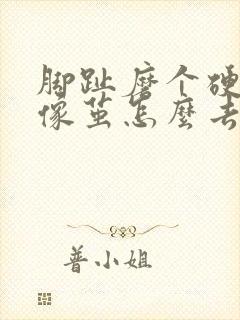 脚趾磨个硬
像茧怎麼去
普小姐